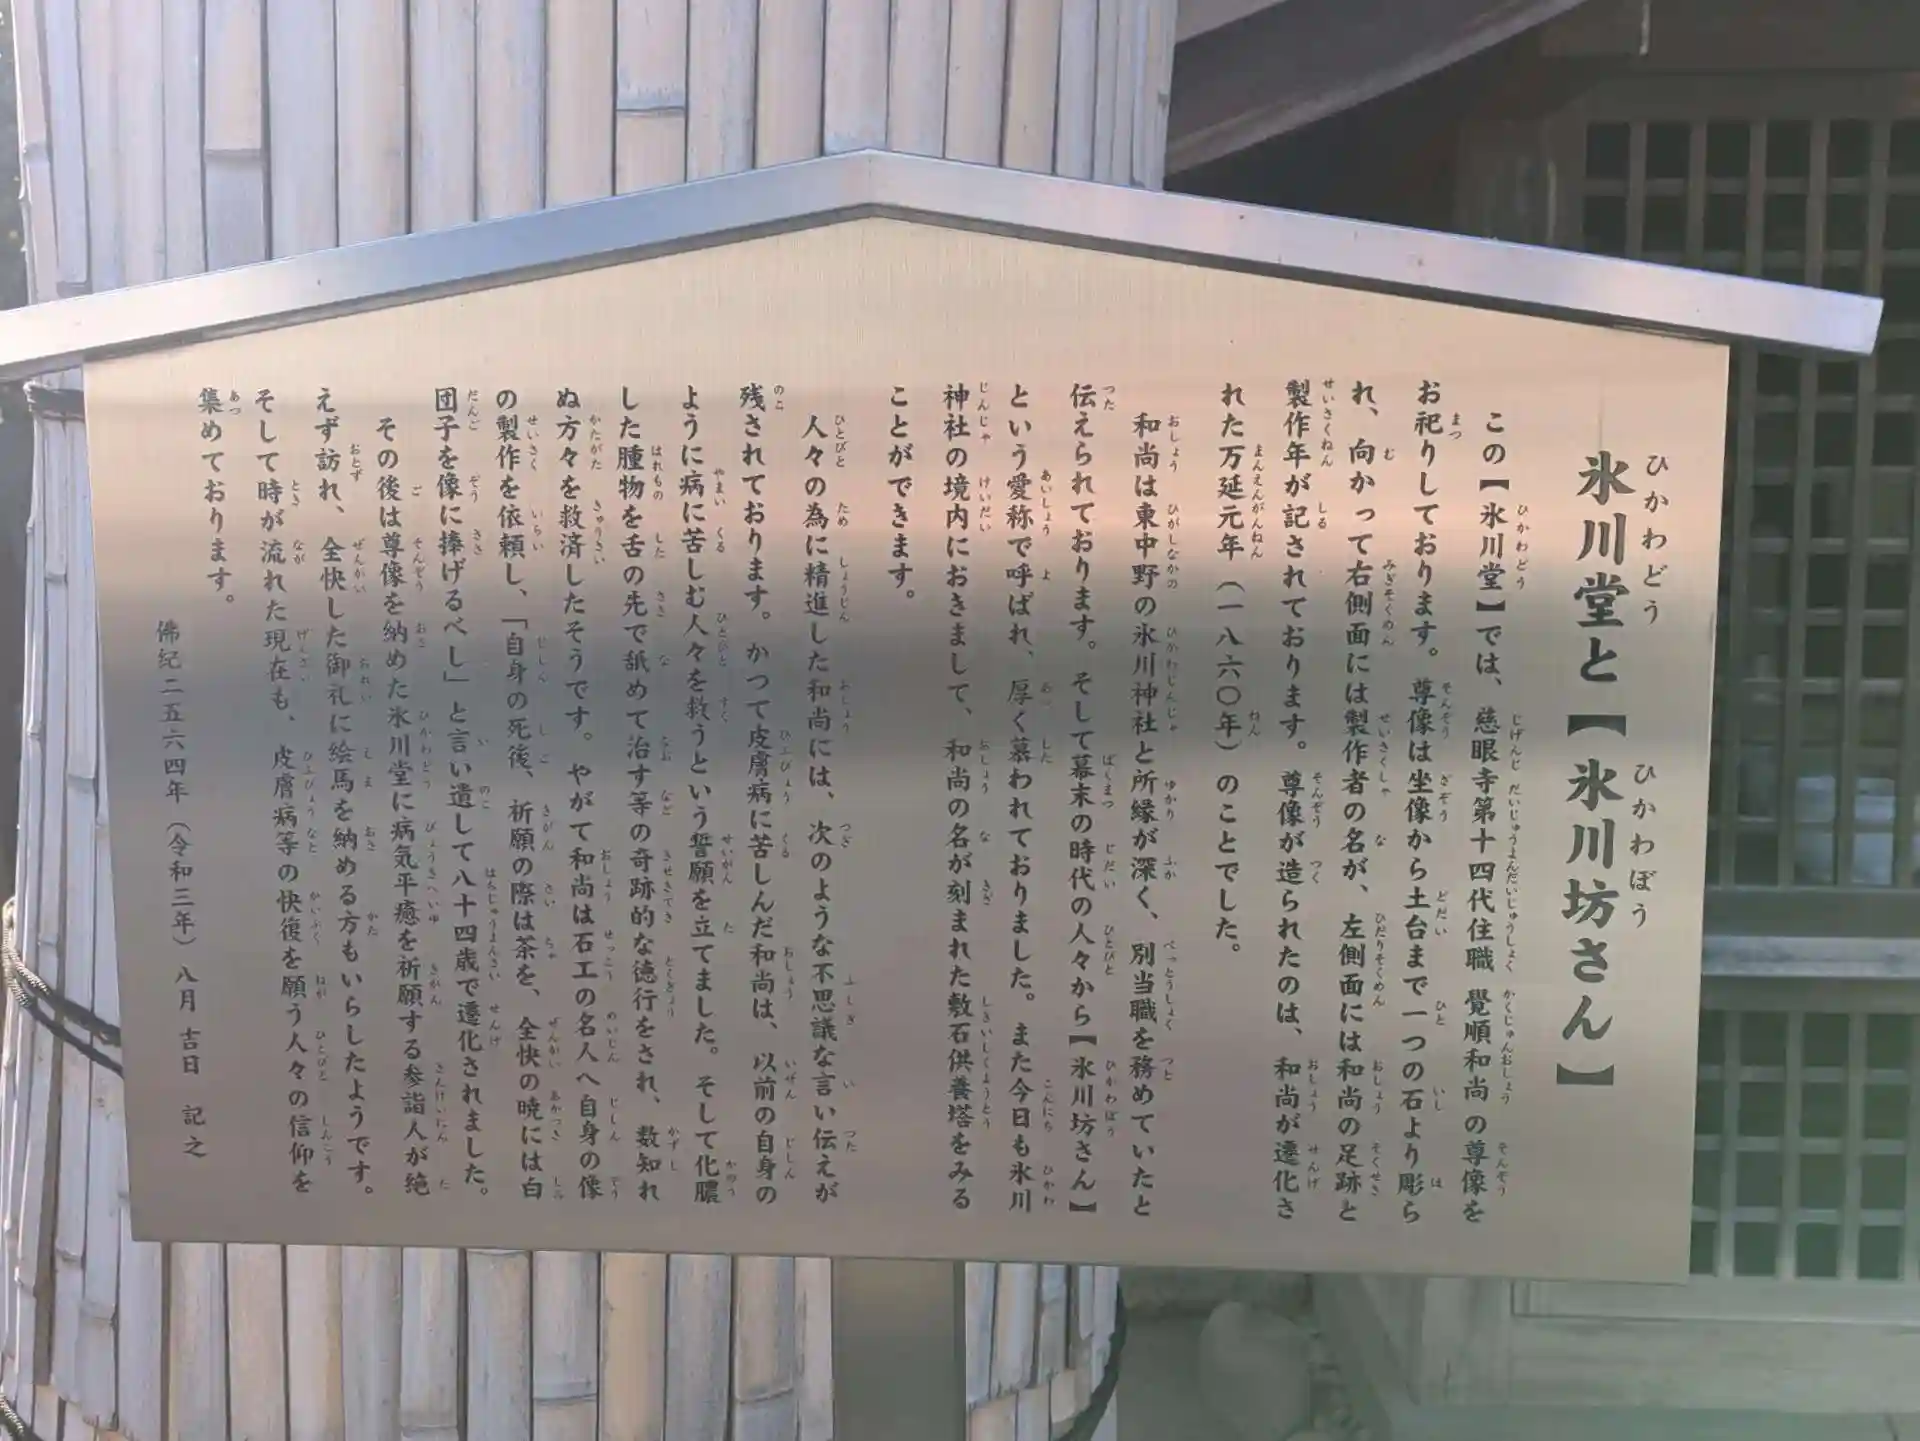 氷川堂と【氷川坊さん】
この【氷川堂】では、慈眼寺第十四代住職 覺順和尚の尊像を
お祀りしております。尊像は坐像から土台まで一つの石より彫ら
れ、向かって右側面には製作者の名が、左側面には和尚の足跡と
製作年が記されております。尊像が造られたのは、和尚が遷化さ
れた万延元年（一八六〇年）のことでした。
和尚は東中野の氷川神社と所縁が深く、別当職を務めていたと
伝えられております。そして幕末の時代の人々から【氷川坊さん】
という愛称で呼ばれ、厚く慕われておりました。また今日も氷川
神社の境内におきまして、和尚の名が刻まれた敷石供養塔をみる
ことができます。
人々の為に精進した和尚には、次のような不思議な言い伝えが
残されております。かつて皮膚病に苦しんだ和尚は、以前の自身の
ように病に苦しむ人々を救うという誓願を立てました。そして化膿
した腫物を舌の先で舐めて治す等の奇跡的な徳行をされ、数知れ
ぬ方々を救済したそうです。やがて和尚は石工の名人へ自身の像
の製作を依頼し、「自身の死後、祈願の際は茶を、全快の暁には白
団子を像に捧げるべし」と言い遺して八十四歳で遷化されました。
その後は尊像を納めた氷川堂に病気平癒を祈願する参詣人が絶
えず訪れ、全快した御礼に絵馬を納める方もいらしたようです。
そして時が流れた現在も、皮膚病等の快復を願う人々の信仰を
集めております。
佛紀二五六四年（令和三年）八月 吉日 記之